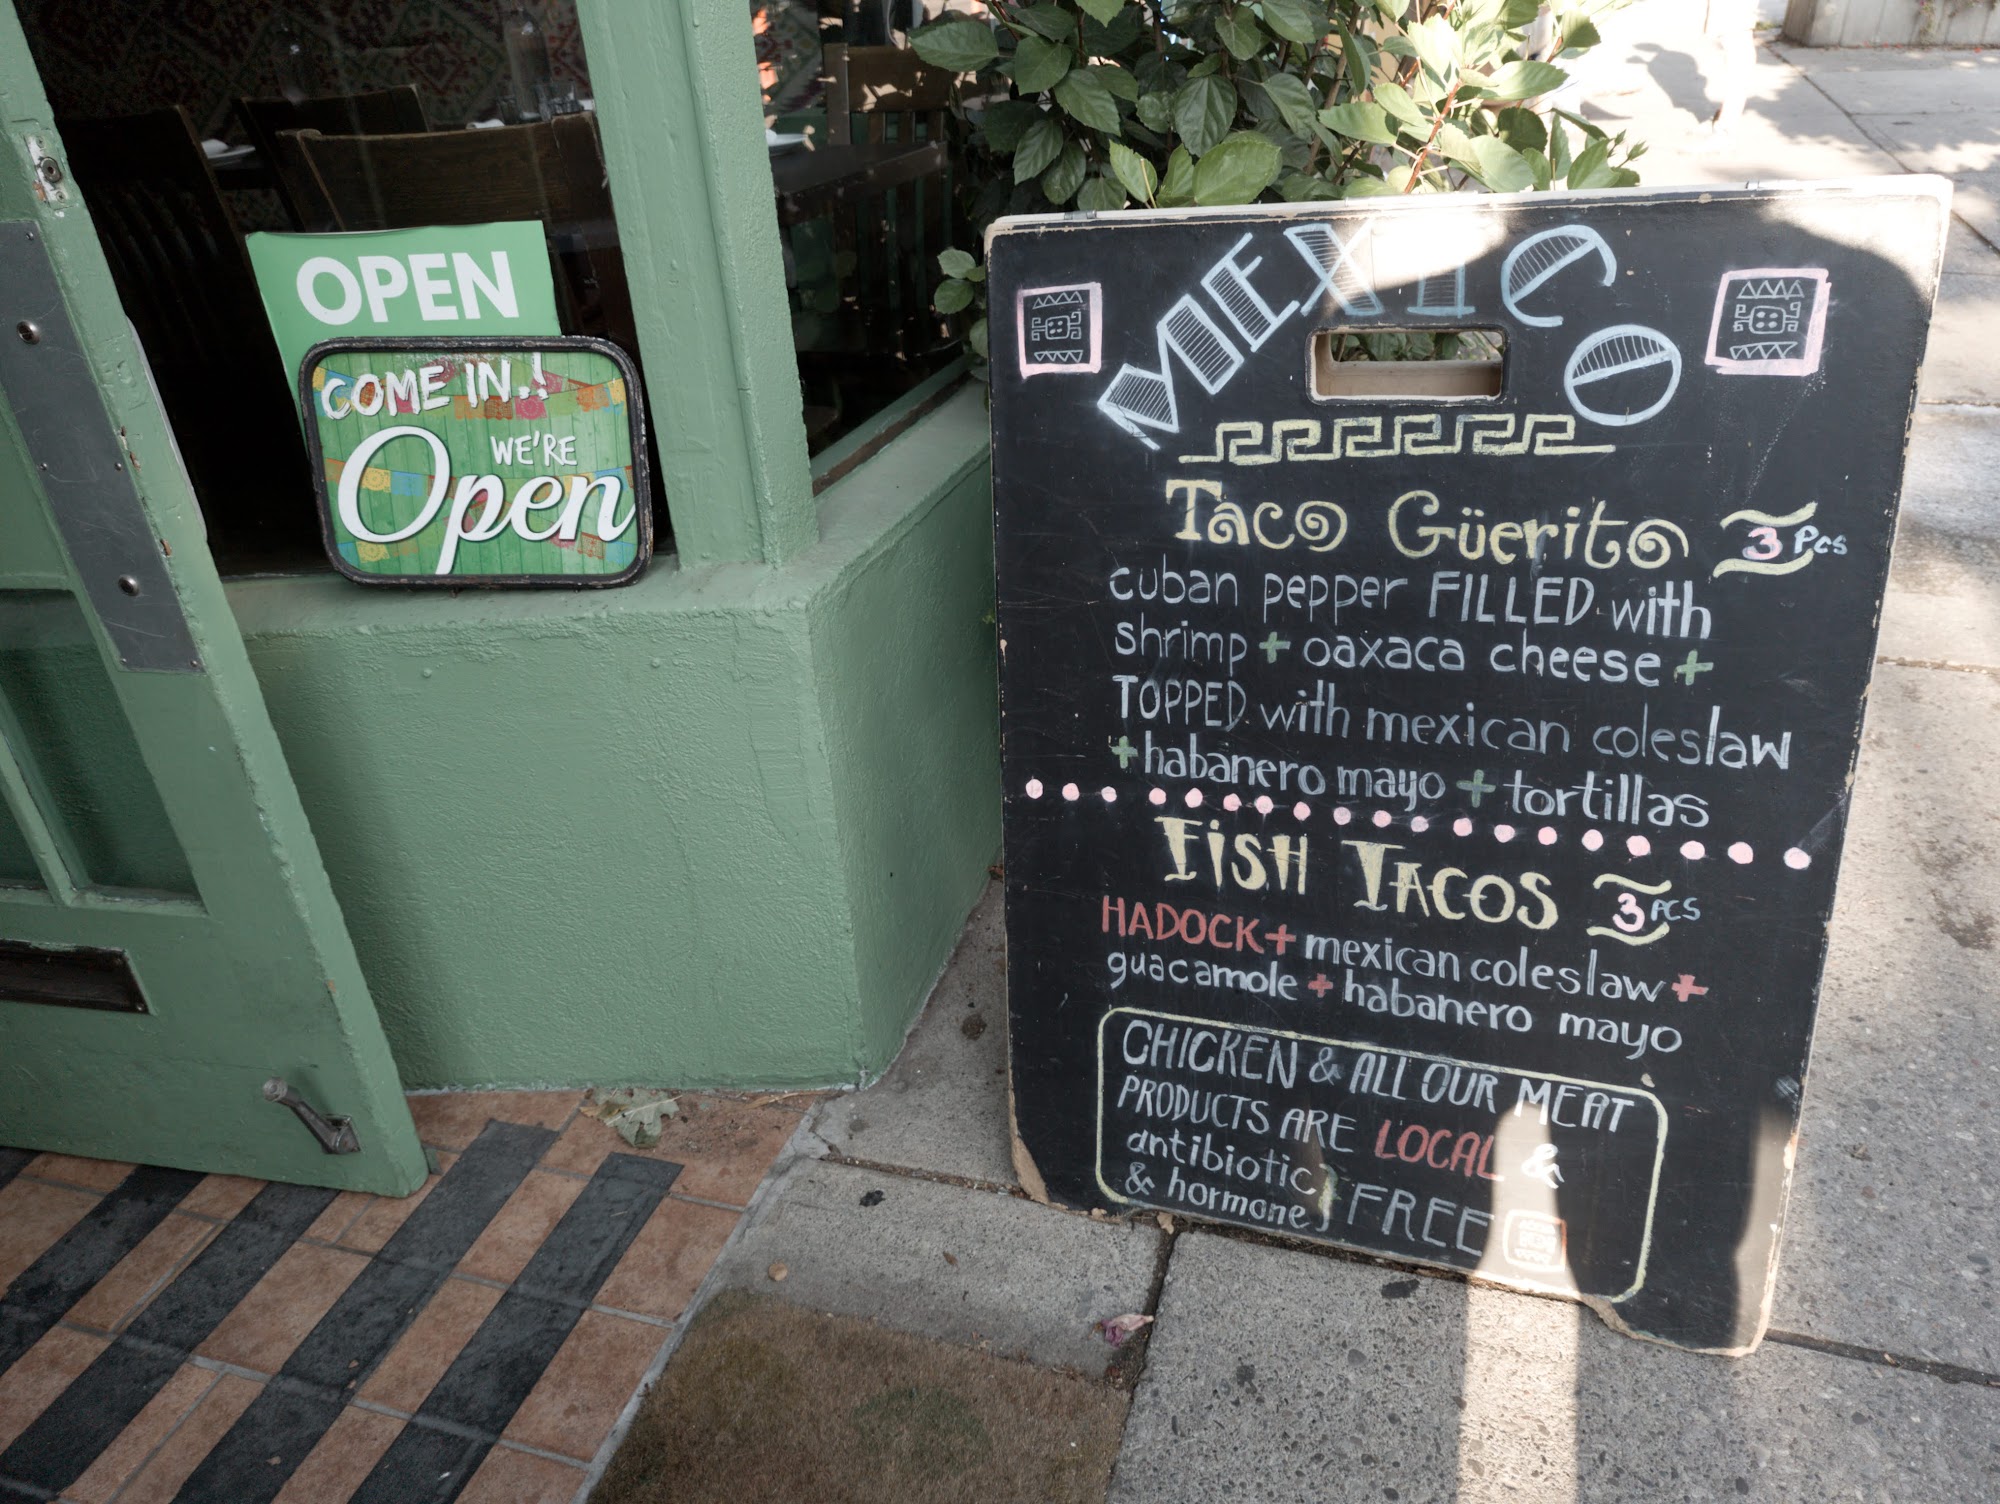 OPEN
COME IN..!
WE'RE
Open
MEXICO
Taco Güerito 3 Pcs
cuban pepper FILLED with
shrimp + oaxaca cheese +
TOPPED with mexican coleslaw
+ habanero mayo + tortillas
FiSH TACOS 3 PCS
HADOCK + mexican coleslaw +
guacamole + habanero mayo
CHICKEN & ALL OUR MEAT
PRODUCTS ARE LOCAL &
antibiotic
& hormone } FREE